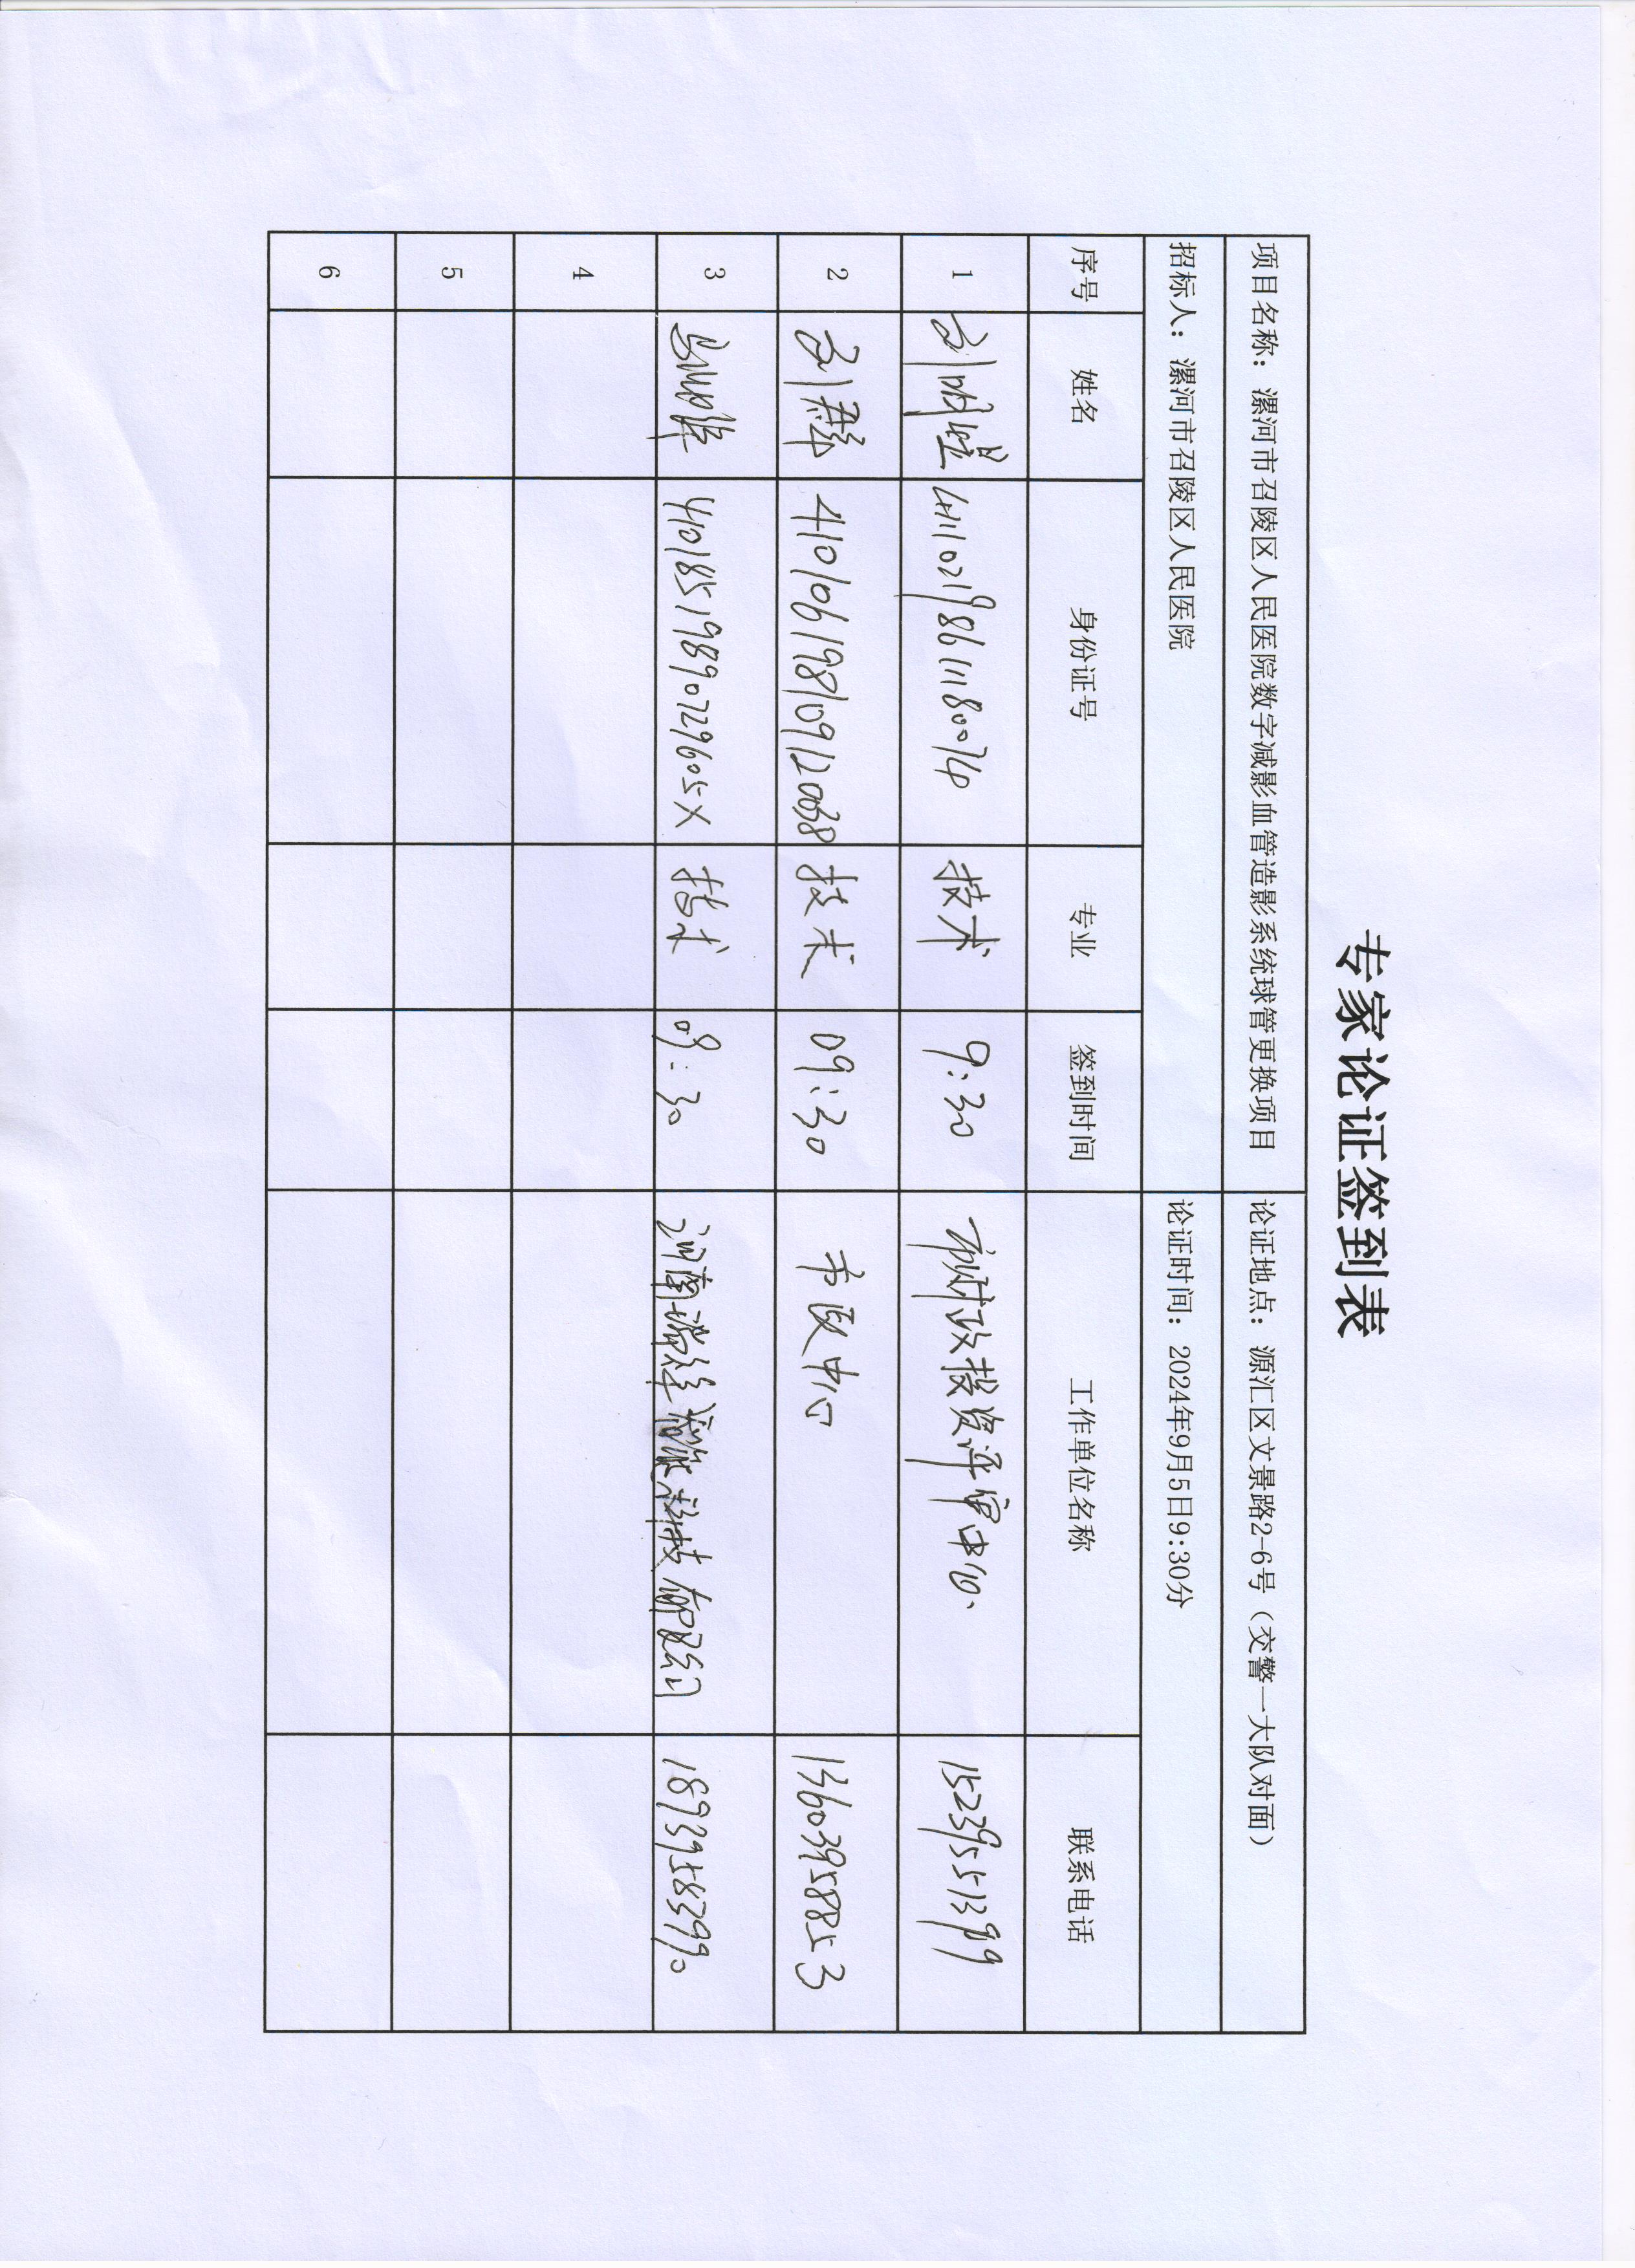 专家论证签到表
项目名称：漯河市召陵区人民医院数字减影血管造影系统球管更换项目 论证地点：源汇区文景路2-6号（交警一大队对面）
招标人：漯河市召陵区人民医院 论证时间：2024年9月5日9:30分
序号 姓名 身份证号 专业 签到时间 工作单位名称 联系电话
1 刘 411102198611180074 技术 9:30 市财政投资评审中心 15239551399
2 刘 410106198109120038 技术 09:30 市政中心 13603958853
3 41018519890729605X 技术 09:30 河南 科技有限公司 18939583990
4
5
6